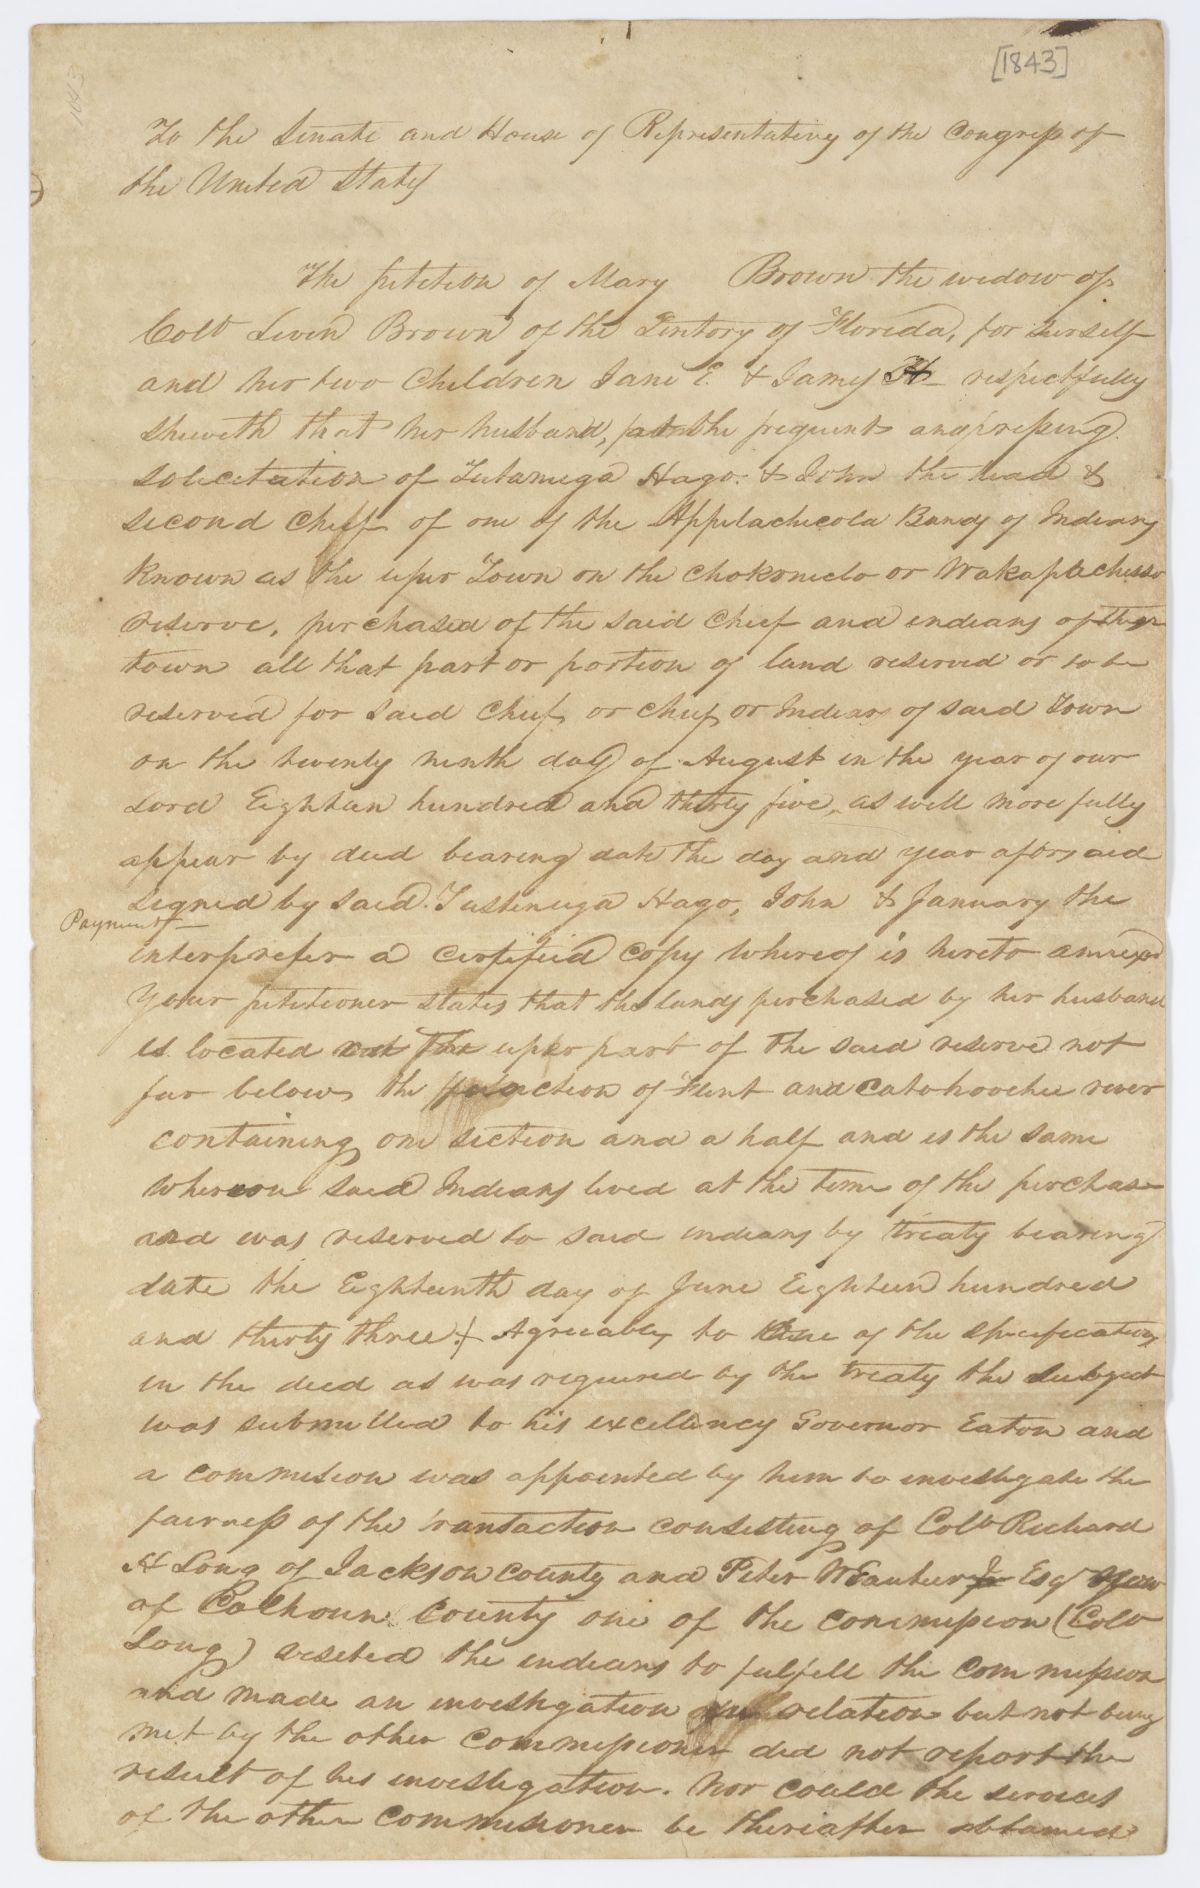 [1843]
To the Senate and House of Representatives of the Congress of
the United States
The petition of Mary Brown the widow of
Colo Livin Brown of the Teritory of Florida, for herself
and her two Children Jane E. & James H respectfully
sheweth that her husband, at the frequent and pressing
solicitation of Tustanuga Hago. & John the head &
second Chiefs of one of the Appelachicola Bands of Indians
known as the uper Town on the Chokoniclo or Wakapachasse
reserve, purchased of the said Chief and indians of their
town all that part or portion of land reserved or to be
reserved for said Chief, or chiefs or Indians of said Town
on the twenty ninth day of August in the year of our
Lord Eighteen hundred and thirty five, as will more fully
appear by deed bearing date the day and year aforsaid
signed by said Tustinuga Hago, John & January the
Payments
interpreter a certified copy whereof is hereto annexed
Your petitioner states that the lands purchased by her husband
is located the uper part of the said reserve not
far below the junction of Flint and Catohoochee river
containing one section and a half and is the same
whereon said Indians lived at the time of the perchase
and was reserved to said indians by treaty bearing
date the Eighteenth day of June Eighteen hundred
and thirty three. Agreeably to of the specifications
in the deed as was required by the treaty the subject
was submitted to his excellency Governor Eaton and
a commission was appointed by him to investigate the
fairness of the transaction consisting of Colo Richard
H Long of Jackson county and Peter W Gautier Jr Esqr now
of Calhoun County one of the commission (Colo
Long) visited the indians to fulfill the commission
and made an investigation relation but not being
met by the other Commissioner did not report the
result of his investigation. Nor could the services
of the other commissioner be thereafter obtained